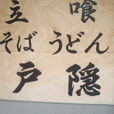 立喰
そばうどん
戸隠